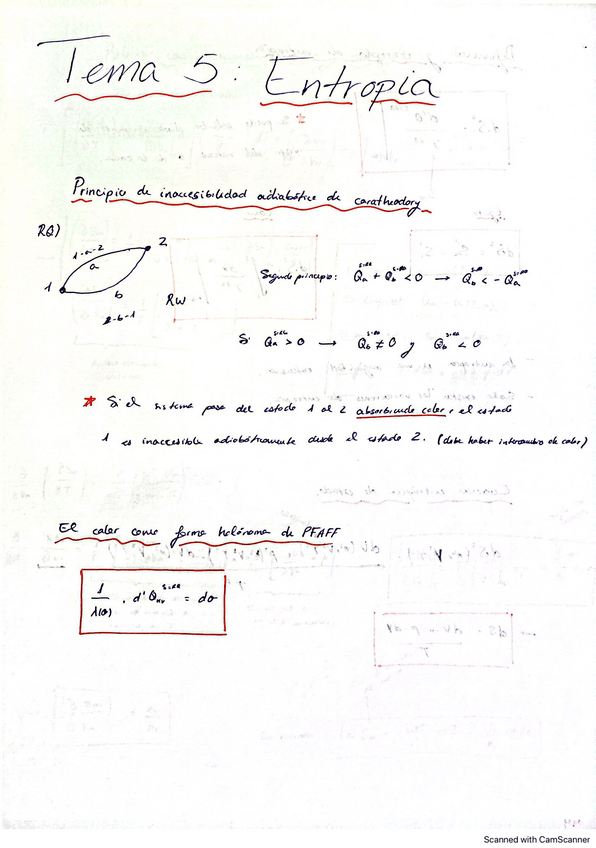 Tema 5: Entropia
Principio de inaccesibilidad adiabática de caratheodory
RQ)
1-a-2
2
a
1
b
2-b-1
RW
Segundo principio: Qₐˢⁱˢᵗ + Q_bˢⁱˢᵗ < 0 → Q_bˢⁱˢᵗ < - Qₐˢⁱˢᵗ
Si Qₐˢⁱˢᵗ > 0 → Q_bˢⁱˢᵗ ≠ 0 y Q_bˢⁱˢᵗ < 0
* Si el sistema pasa del estado 1 al 2 absorbiendo calor, el estado
1 es inaccesible adiabáticamente desde el estado 2. (debe haber intercambio de calor)
El calor como forma holónoma de PFAFF
1/λ(θ) . d'Q = dσ